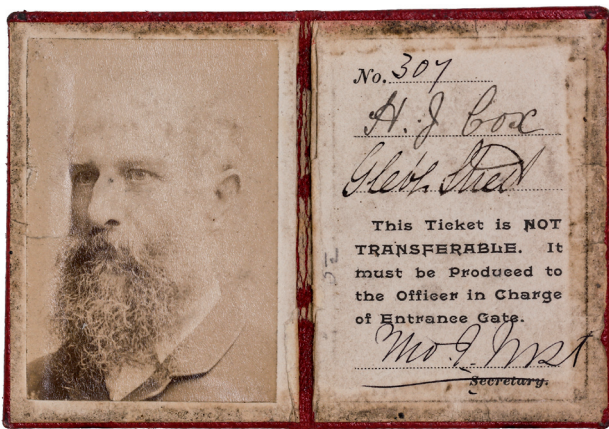 No. 307
H. J. Cox
Street
This Ticket is NOT
TRANSFERABLE. It
must be Produced to
the Officer in Charge
of Entrance Gate.
Secretary.